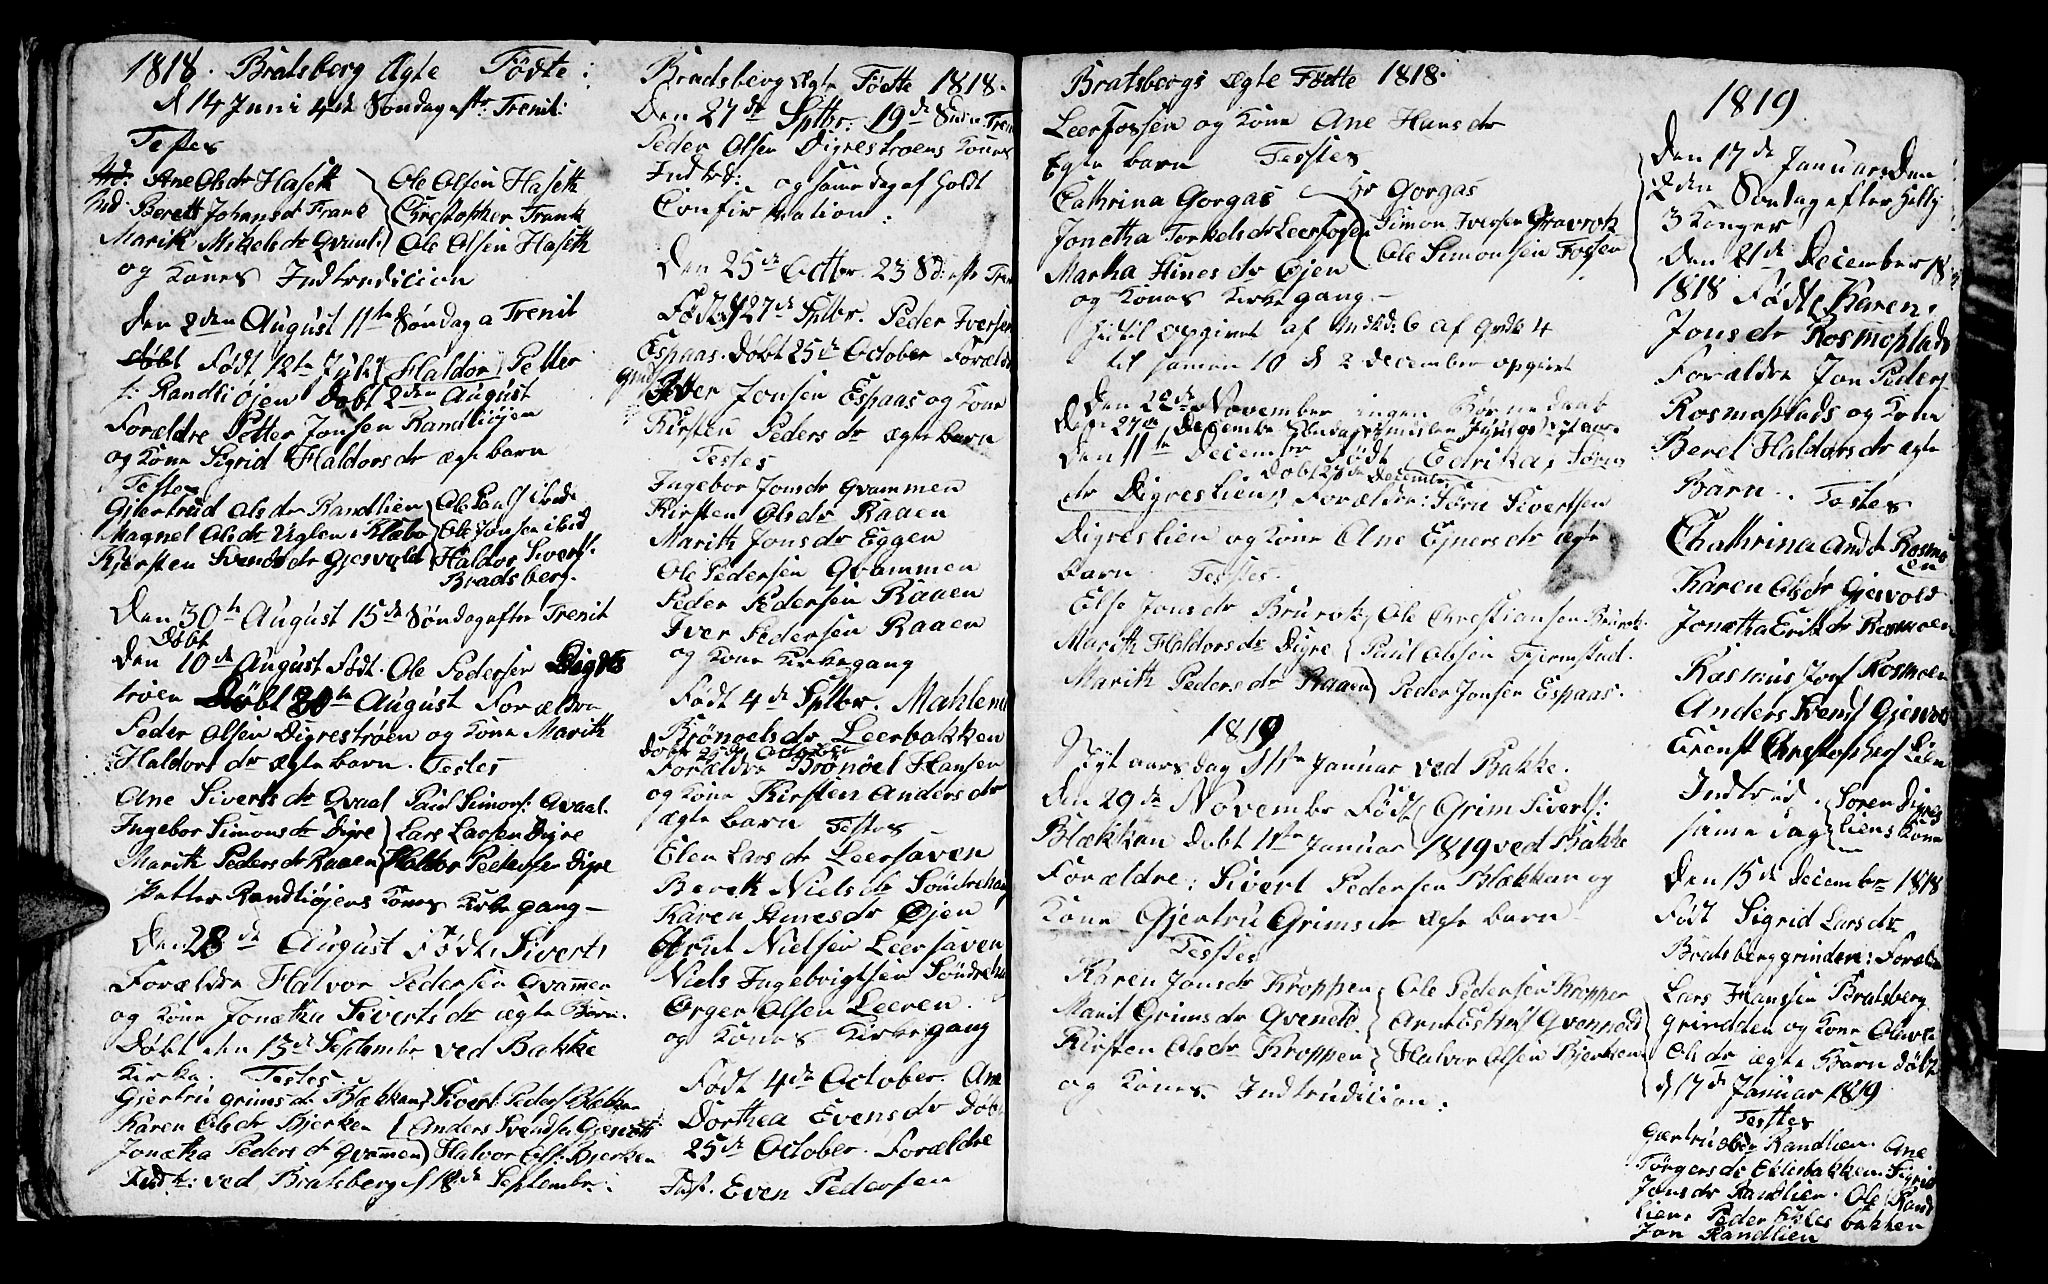 1818. Bratsberg Ægte Fødte:
d 14 Juni 4de Søndag eftr Trenit:
Testes
Ane Olsdr Haseth Ole Olsen Haseth
Ind: Berett Johansdr Frank Christopher Frank
Marit Mikelsdr Qvint Ole Olsen Haseth
og Kones Indtrudicion
Den 2den August 11te Søndag a Trenit
døbt Født 12te July Haldor Petter
s: Randliøjen Døbt 2den August
Forældre Petter Jonsen Randliøjen
og Kone Sigrid Haldorsdr ægte barn
Testes
Giertrud Olsdr Randlien
Magnel Olsdr Uglen i Klæbo Ole Jonsen ibid
Kjersten Svendsdr Gjesvold Haldor Siverts:
Bradsberg.
Den 30te August 15de Søndag efter Trenit
Døbt
Den 10de August Født. Ole Pedersen Digres
trøen Døbt 30te August Forældre
Peder Olsen Digrestrøen og Kone Marith
Haldorsdr ægte barn. Testes
Ane Sivertsdr Qvaal Paul Simons: Qvaal.
Ingebor Simonsdr Digre Lars Larsen Digre
Marith Pedersdr Raaen Haldor Pedersen Digre
Petter Randliøjens Kones Kirkegang –
Den 28de August Født Sivert
Forældre Halvor Pedersen Qvamen
og Kone Jonetha Sivertsdr ægte Børn.
Døbt den 13de September ved Bakke
Kirke. Testes.
Giertru Grimsdr Blækkan Sivert Peders Blækkan
Karen Olsdr Bjerken Anders Svendsen Gjesvold
Jonetha Pedersdr Qvamen Halvor Ols: Bjerken
Indt: ved Bratsberg d 18de Septembr:
Bradsberg Ægte Fødte 1818.
Den 27de Sptbr: 19de Sønd Tren
Peder Olsen Digrestroens Kones
Indtrd: og same dag af holdt
Confirmation:
Den 25de Octbr. 23 Sd: eft Tre
Født d 27de Sptbr. Peder Iversen
Espaas. Døbt 25de October Foræld
Iver Jonsen Espaas og Kone
Kirsten Pedersdr ægte barn
Testes
Ingebor Jonsdr Qvammen
Kirsten Olsdr Raaen
Marith Jonsdr Eggen
Ole Pedersen Qvammen
Peder Pedersen Raaen
Iver Pedersen Raaen
og Kone Kirkegang
Født 4de Sptbr. Mahlena
Brønoelsdr Leerbakken
Døbt 25de October
Forældre Brønoel Hansen
og Kone Kirsten Andersdr
ægte barn Testes
Elen Larsdr Leersaven
Bereth Nielsdr Søndrehaug
Karen Hinesdr Øjen
Arnt Nielsen Leersaven
Niels Ingebrigtsen Søndreha
Ørger Olsen Leeren.
og Kones Kirkegang
Født 4de October. Ane
Dorthea Evensdr Døbt
25de October. Forældre
Inst. Even Pedersen
Bratsbergs Ægte Fødte 1818.
Leerfossen og Kone Ane Hansdr
Egte barn Testes
Cathrina Gorgas Hr Gorgas
Jonetha Torkelsdr Leerfossen Simon Iversen Gravrok
Martha Hinesdr Øjen Ole Simonsen Fossen
og Kones Kirkegang –
hertil opgivet af Mdkd: 6 af Qvdk 4
til samen 10 d 2 December opgivet
Den 22de November ingen Børnedaab
Den 27de December Søndag imellem Juul og Nytaar.
Den 11te December Født Edrika, Søren
Døbt 27de December
dr Digreslien, Forældre: Sørn Sivertsen
Digreslien og Kone Ane Ejnersdr ægte
barn. Testes.
Else Jonsdr Brurok, Ole Christiansen Brurok.
Marith Haldorsdr Digre Paul Olsen Tjernstad.
Marith Pedersdr Raaen Peder Jonsen Espaas.
1819
Nyt aars dag d 1ste Januar ved Bakke.
Den 29de November Født Grim Siverts:
Blækkan Døbt 1ste Januar 1819 ved Bakke
Forældre: Sivert Pedersen Blækkan og
Kone Gjertru Grimsdr ægte barn
Testes
Karen Jonsdr Kroppen Ole Pedersen Kroppen
Marit Grimsdr Qveneld
Kirsten Olsdr Kroppen Halvor Olsen Bjerken
og Kones Indtrudicion:
1819
Den 17de Januar Den
2den Søndag efter Hellig
3 Konger
Den 21de December 18
1818 Født Karen,
Jonsdr Rosmoplads
Forældre Jon Peders:
Rosmoplads og Kone
Beret Haldorsdr ægte
Barn. Testes
Chathrina Andr Rosmo
en
Karen Olsdr Gjesvold
Jonetha Eriksdr Rosmoen
Rasmus Jons Rosmoen
Anders Svends Gjesvold
Erenst Christophers Lien
Indtrud. Søren Digres
same dag liens Kone
Den 15de December 1818
Født Sigrid Larsdr
Bratsberggrinden: Forældre
Lars Hansen Bratsberg
grindden og Kone Olava
Olsdr ægte Barn døbt
d 17de Januar 1819
Testes
Giertrud Randlien. Ane
Jørgensdr Eklesbakken. Sigrid
Jonsdr Randlien. Ole Rand
lien. Peder Eklesbakken
Jon Randlien